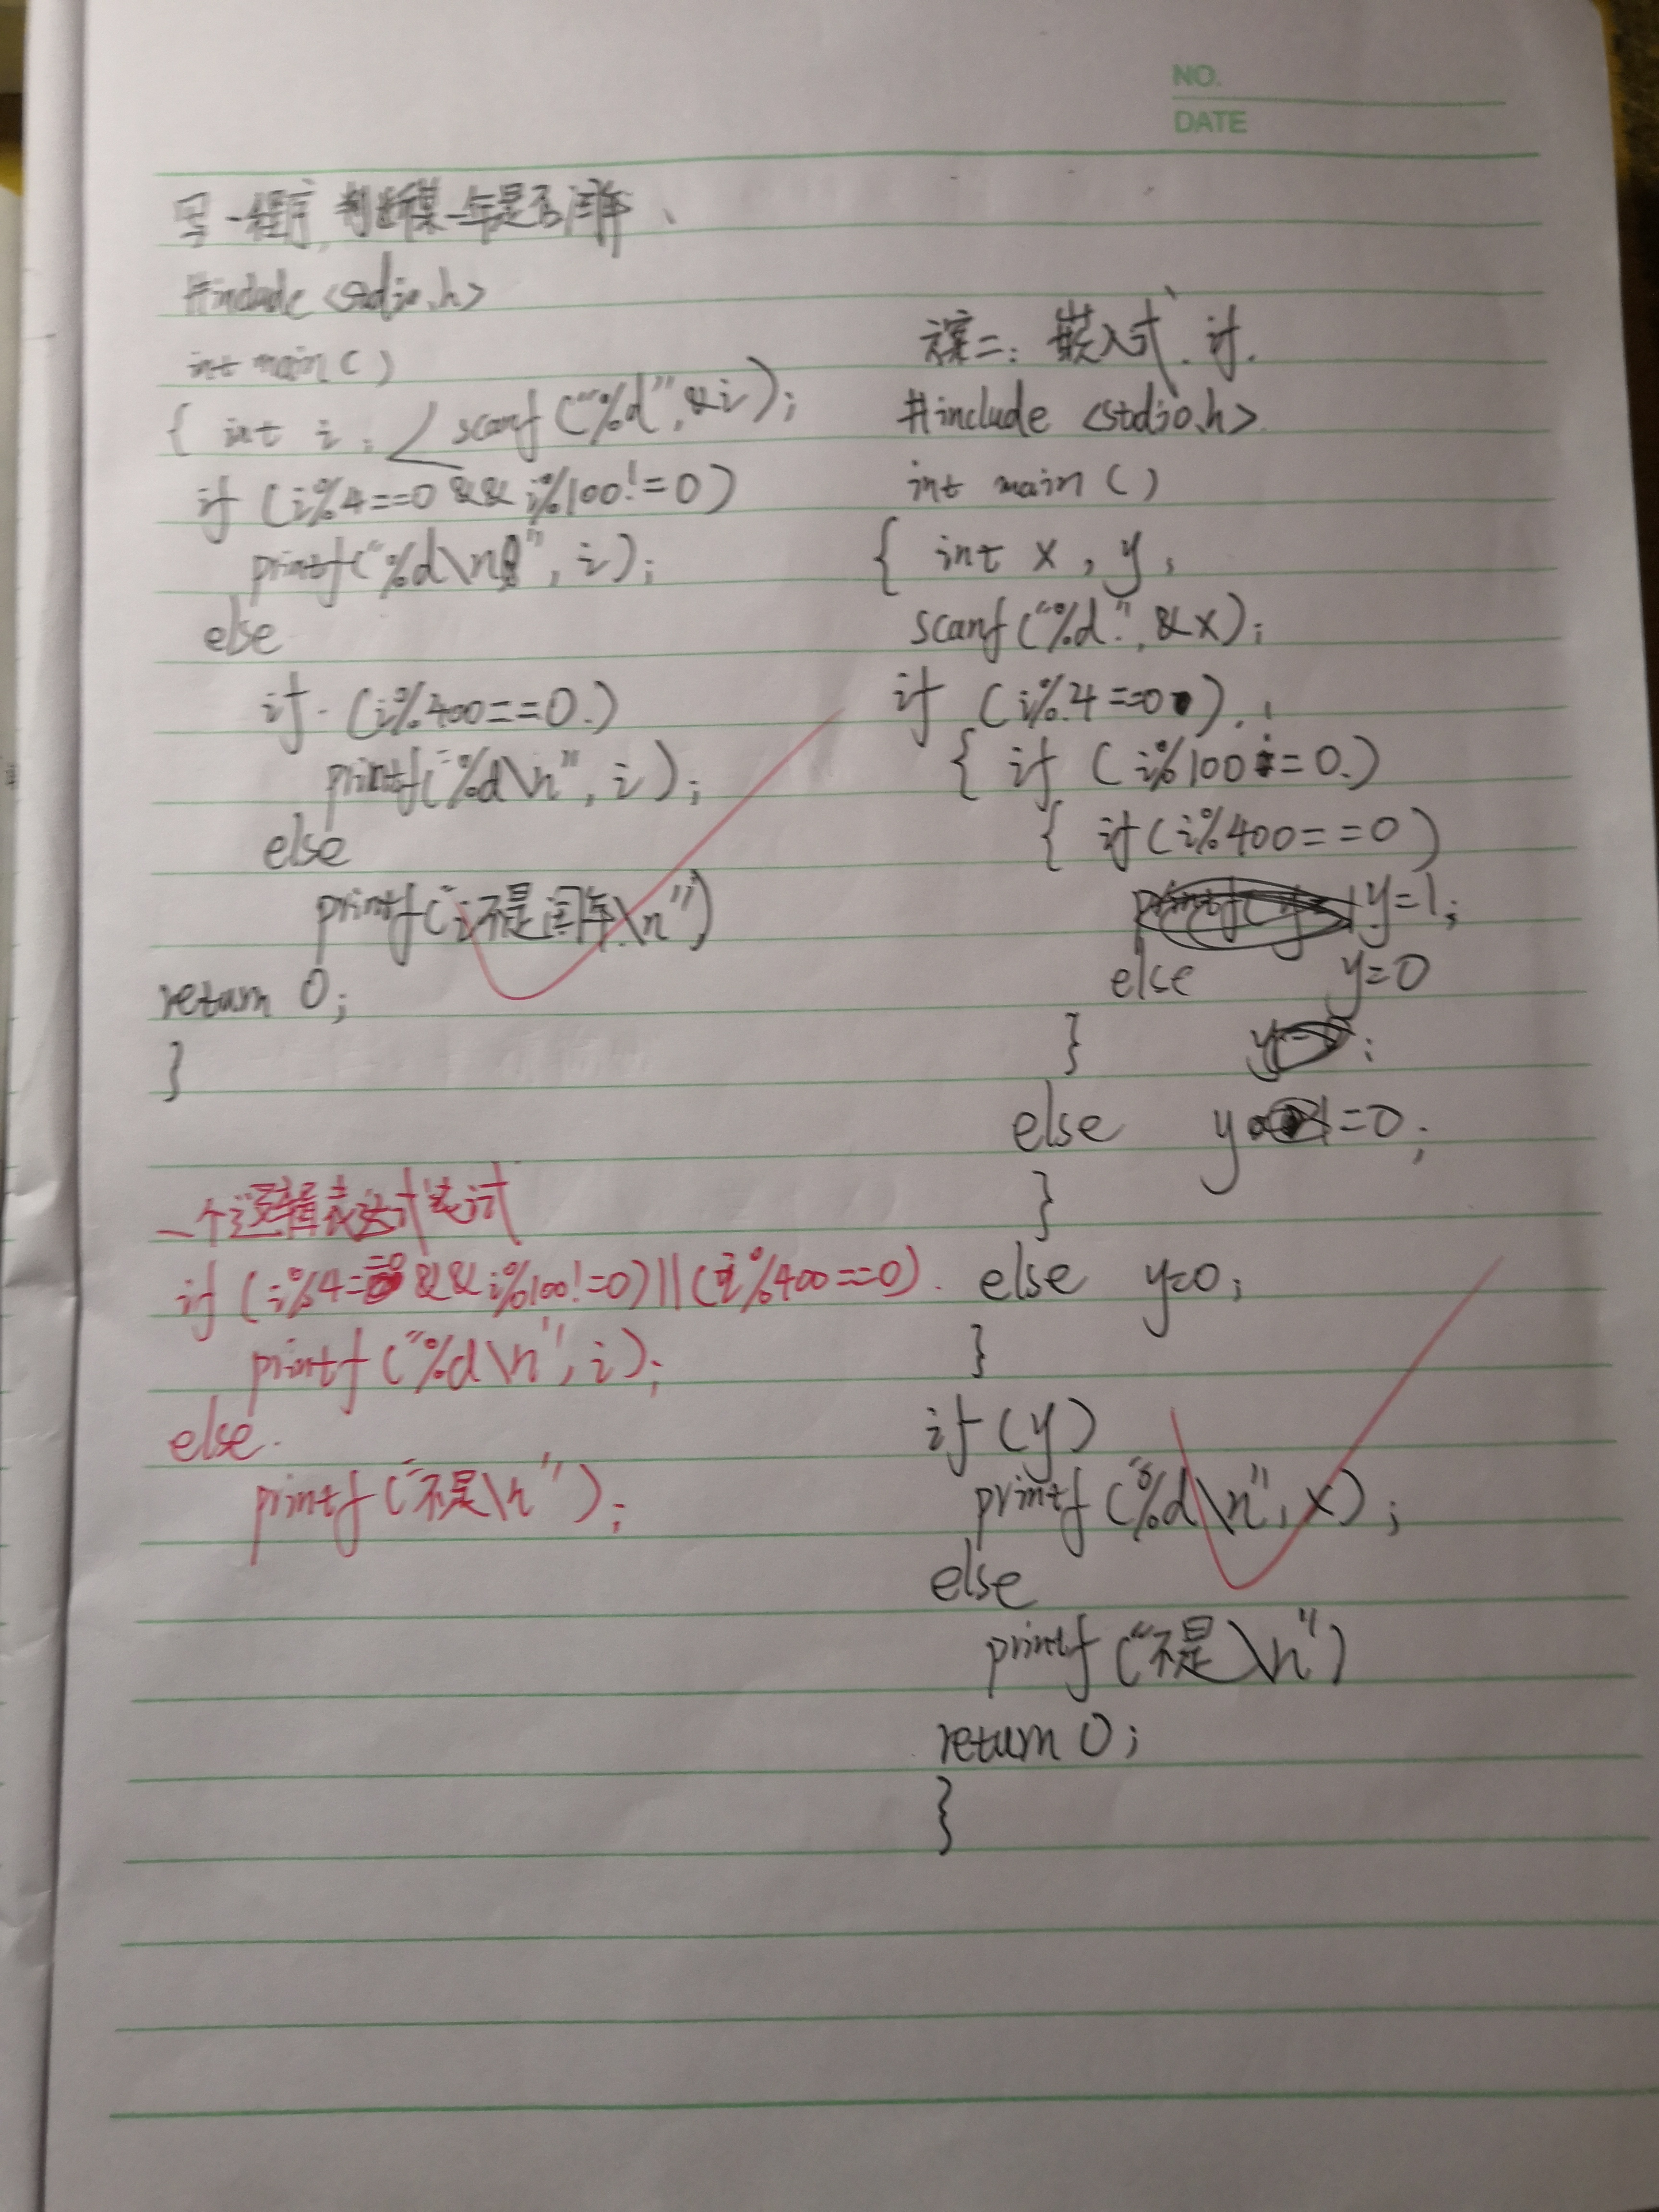 NO.
DATE
写一程序,判断某一年是否闰年、
#include <stdio.h>
int main()
{ int i; scanf("%d",&i);
if (i%4==0 && i%100!=0)
printf("%d\n", i);
else
if (i%400==0)
printf("%d\n", i);
else
printf("i不是闰年\n")
return 0;
}
一个逻辑表达式设计
if (i%4==0 && i%100!=0)||(i%400==0).
printf("%d\n", i);
else.
printf("不是\n");
方案二: 嵌入式、计.
#include <stdio.h>
int main()
{ int x, y;
scanf("%d", &x);
if (i%4==0)
{ if (i%100==0)
{ if(i%400==0)
y=1;
else y=0
}
else y=0;
}
else y=0;
}
if(y)
printf("%d\n", x);
else
printf("不是\n")
return 0;
}